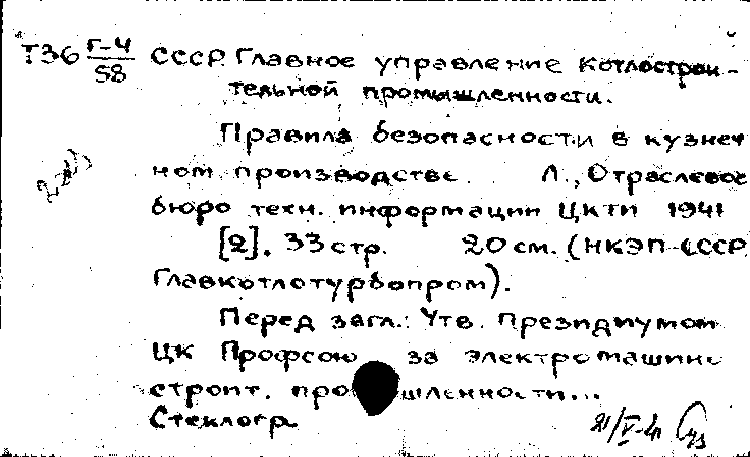 Т36 Г-4/58 СССР. Главное управление котлострои-
тельной промышленности.
Правила безопасности в кузнеч
ном производстве. Л., Отраслевое
бюро техн. информации ЦКТИ 1941
[2], 33 стр. 20 см. (НКЭП-СССР
Главкотлотурбопром).
Перед загл.: Утв. Президиумом
ЦК Профсою за электромашино
строит. промышленности...
Стеклогр.